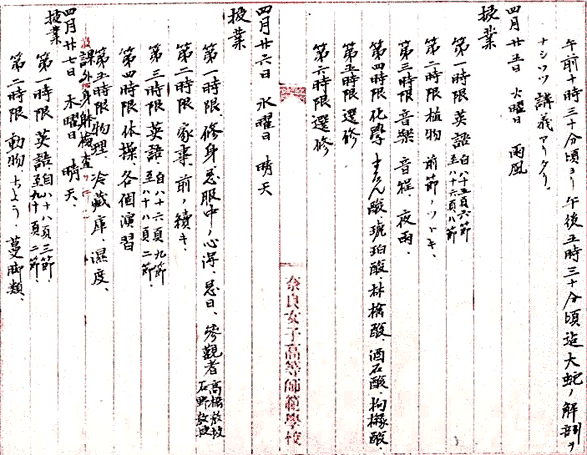 午前十時三十分頃ヨリ午後五時三十分頃迄大蛇ノ解剖ヲ
ナシツツ講義アリタリ。
四月廿五日 火曜日 雨風
授業
第一時限 英語 自八十五頁六節 至八十六頁八節
第二時限 植物 前節ノツヅキ、
第三時限 音楽 音程、夜雨、
第四時限 化學 まろん酸、琥珀酸、林檎酸、酒石酸、枸櫞酸、
第五時限 選修
第六時限 選修
四月廿六日 水曜日 晴天
授業
第一時限 修身 忌服中ノ心得、忌日、參觀者 高橋教授 石野教授
第二時限 家事 前ノ續キ、
第三時限 英語 自八十六頁九節 至八十八頁二節、
第四時限 体操 各個演習
第五時限 物理 冷蔵庫、濕度、
課外 身躰檢査
四月廿七日 木曜日 晴天、
授業
第一時限 英語 自八十八頁三節、至九十頁二節、
第二時限 動物 ちよう、蔓脚類、
奈良女子高等師範學校